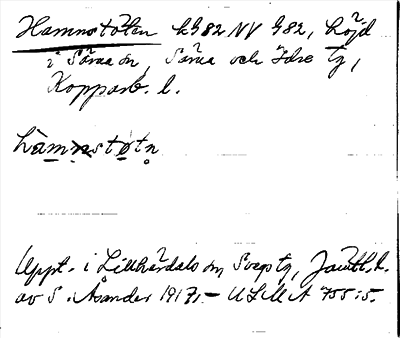 Hamnstöten kG82 NV G82, höjd
i Särna sn, Särna och Idre tg,
Kopparb. l.
hàmnstøtn̥
Uppt. i Lillhärdals sn Svegs tg, Jämtl. l.
av S. Åsander 1917. – ULMA 755:5.